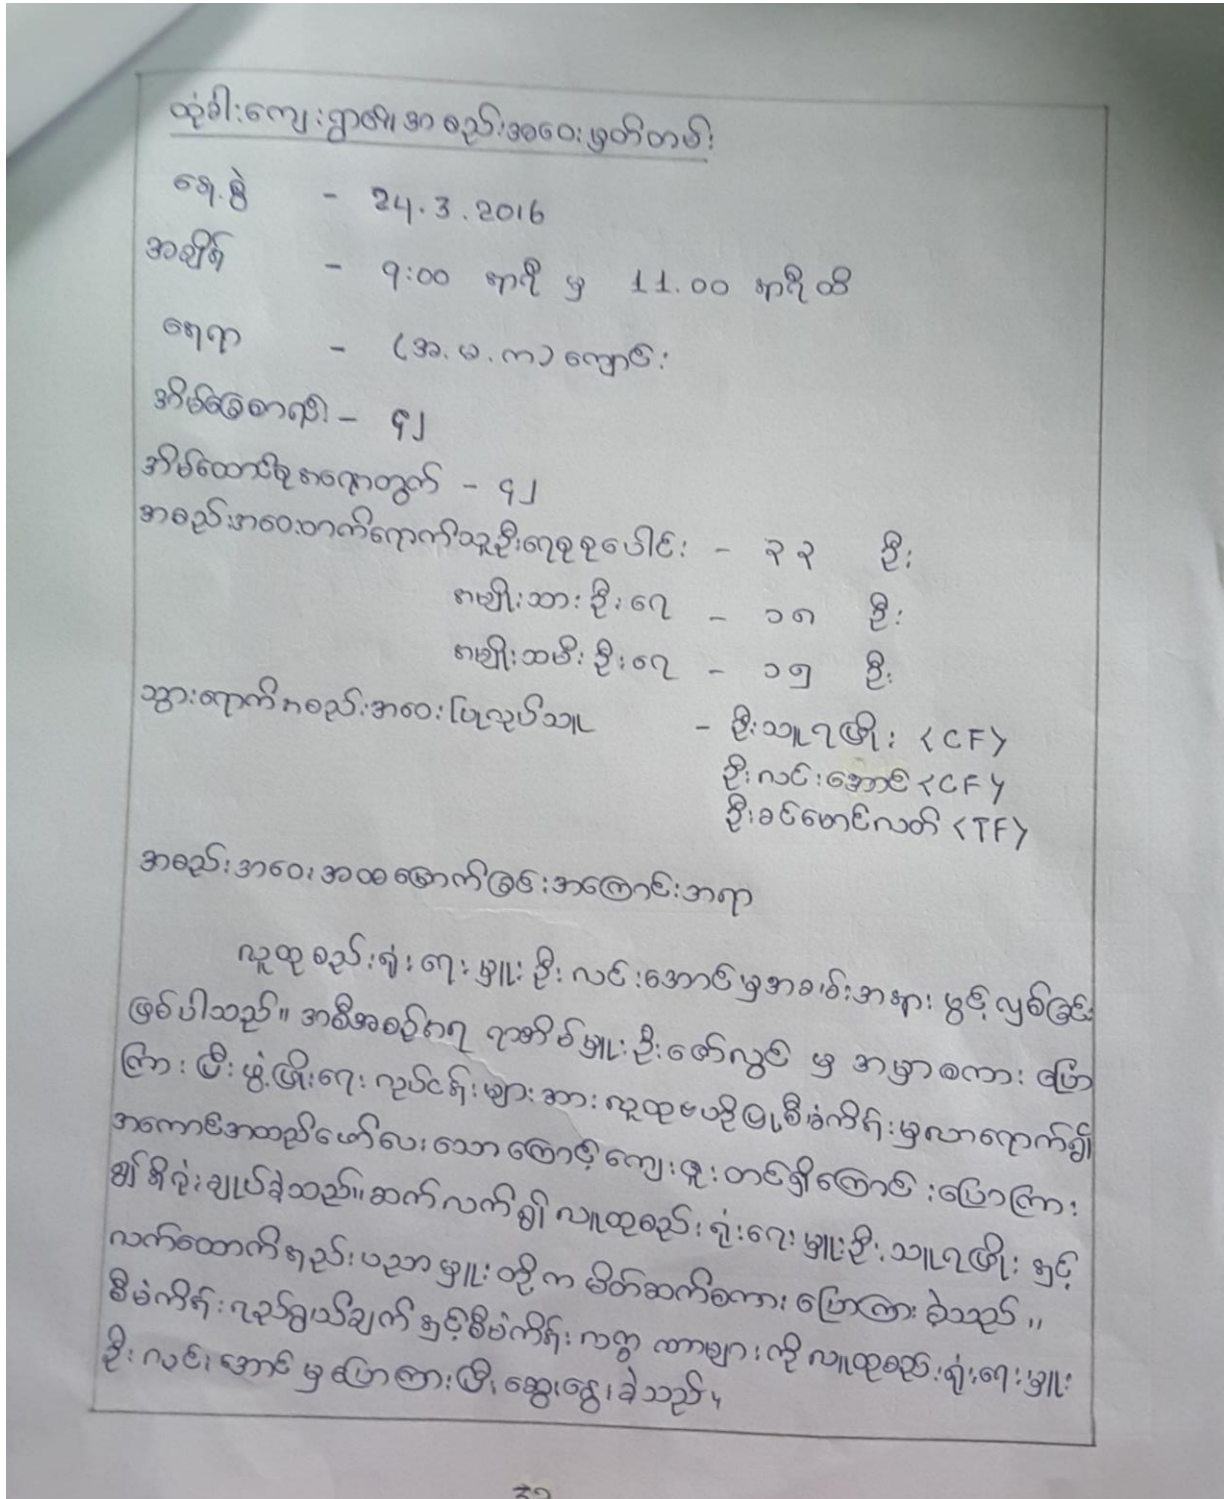 ထုံခါးကျေးရွာ၏ အစည်းအဝေးမှတ်တမ်း
နေ့စွဲ - 24.3.2016
အချိန် - 9:00 နာရီ မှ 11.00 နာရီ ထိ
နေရာ - (အ.မ.က) ကျောင်း
အိမ်ခြေစာရင်း - ၄၂
အိမ်ထောင်စုအရေအတွက် - ၄၂
အစည်းအဝေးတက်ရောက်သူဦးရေစုစုပေါင်း - ၃၃ ဦး
အမျိုးသားဦးရေ - ၁၈ ဦး
အမျိုးသမီးဦးရေ - ၁၅ ဦး
သွားရောက်အစည်းအဝေးပြုလုပ်သူ - ဦးသူရဖြိုး <CF>
ဦးလင်းအောင် <CF>
ဦးခင်မောင်လတ် <TF>
အစည်းအဝေးအထမြောက်ခြင်းအကြောင်းအရာ
လူထုစည်းရုံးရေးမှူး ဦးလင်းအောင်မှအခမ်းအနား ဖွင့်လှစ်ခြင်း
ဖြစ်ပါသည်။ အစီအစဉ်အရ ရာအိမ်မှူးဦးဇော်လွင် မှ အမှာစကား ပြော
ကြားပြီး ဖွံ့ဖြိုးရေး လုပ်ငန်းများအား လူထုဗဟိုပြုစီမံကိန်းမှလာရောက်၍
အကောင်အထည်ဖော်ပေးသောကြောင့် ကျေးဇူးတင်ရှိကြောင်း ပြောကြား
၍ နိဂုံးချုပ်ခဲ့သည်။ ဆက်လက်၍ လူထုစည်းရုံးရေးမှူးဦးသူရဖြိုး နှင့်
လက်ထောက်နည်းပညာမှူး တို့က မိတ်ဆက်စကား ပြောကြားခဲ့သည်။
စီမံကိန်းရည်ရွယ်ချက်နှင့်စီမံကိန်း ကဏ္ဍ လာများကို လူထုစည်းရုံးရေးမှူး
ဦးလင်းအောင် မှပြောကြားပြီး ဆွေးနွေးခဲ့သည်။